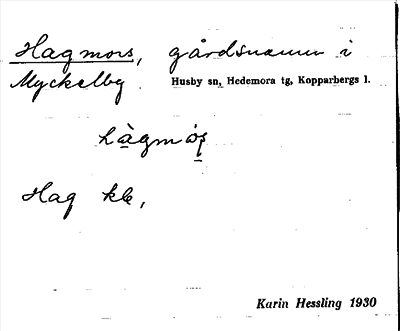 Hagmors, gårdsnamn i
Myckelby Husby sn, Hedemora tg, Kopparbergs l.
Hag kle,
Karin Hessling 1930